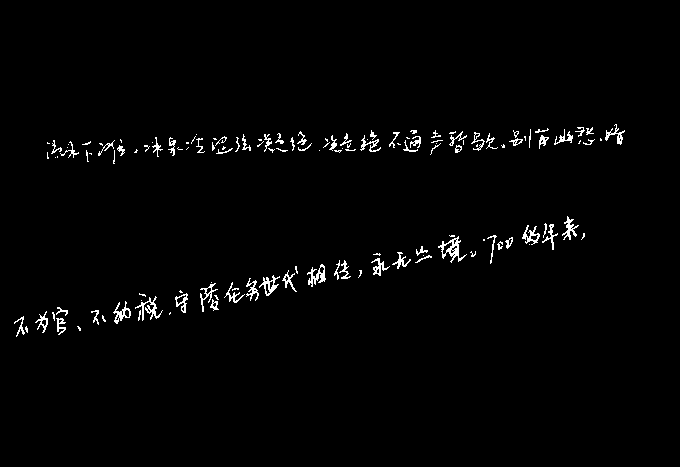 流泉下滩。冰泉冷涩弦凝绝,凝绝不通声暂歇。别有幽愁、暗
不为官、不纳税,守陵任务世代相传,永无止境。700多年来,